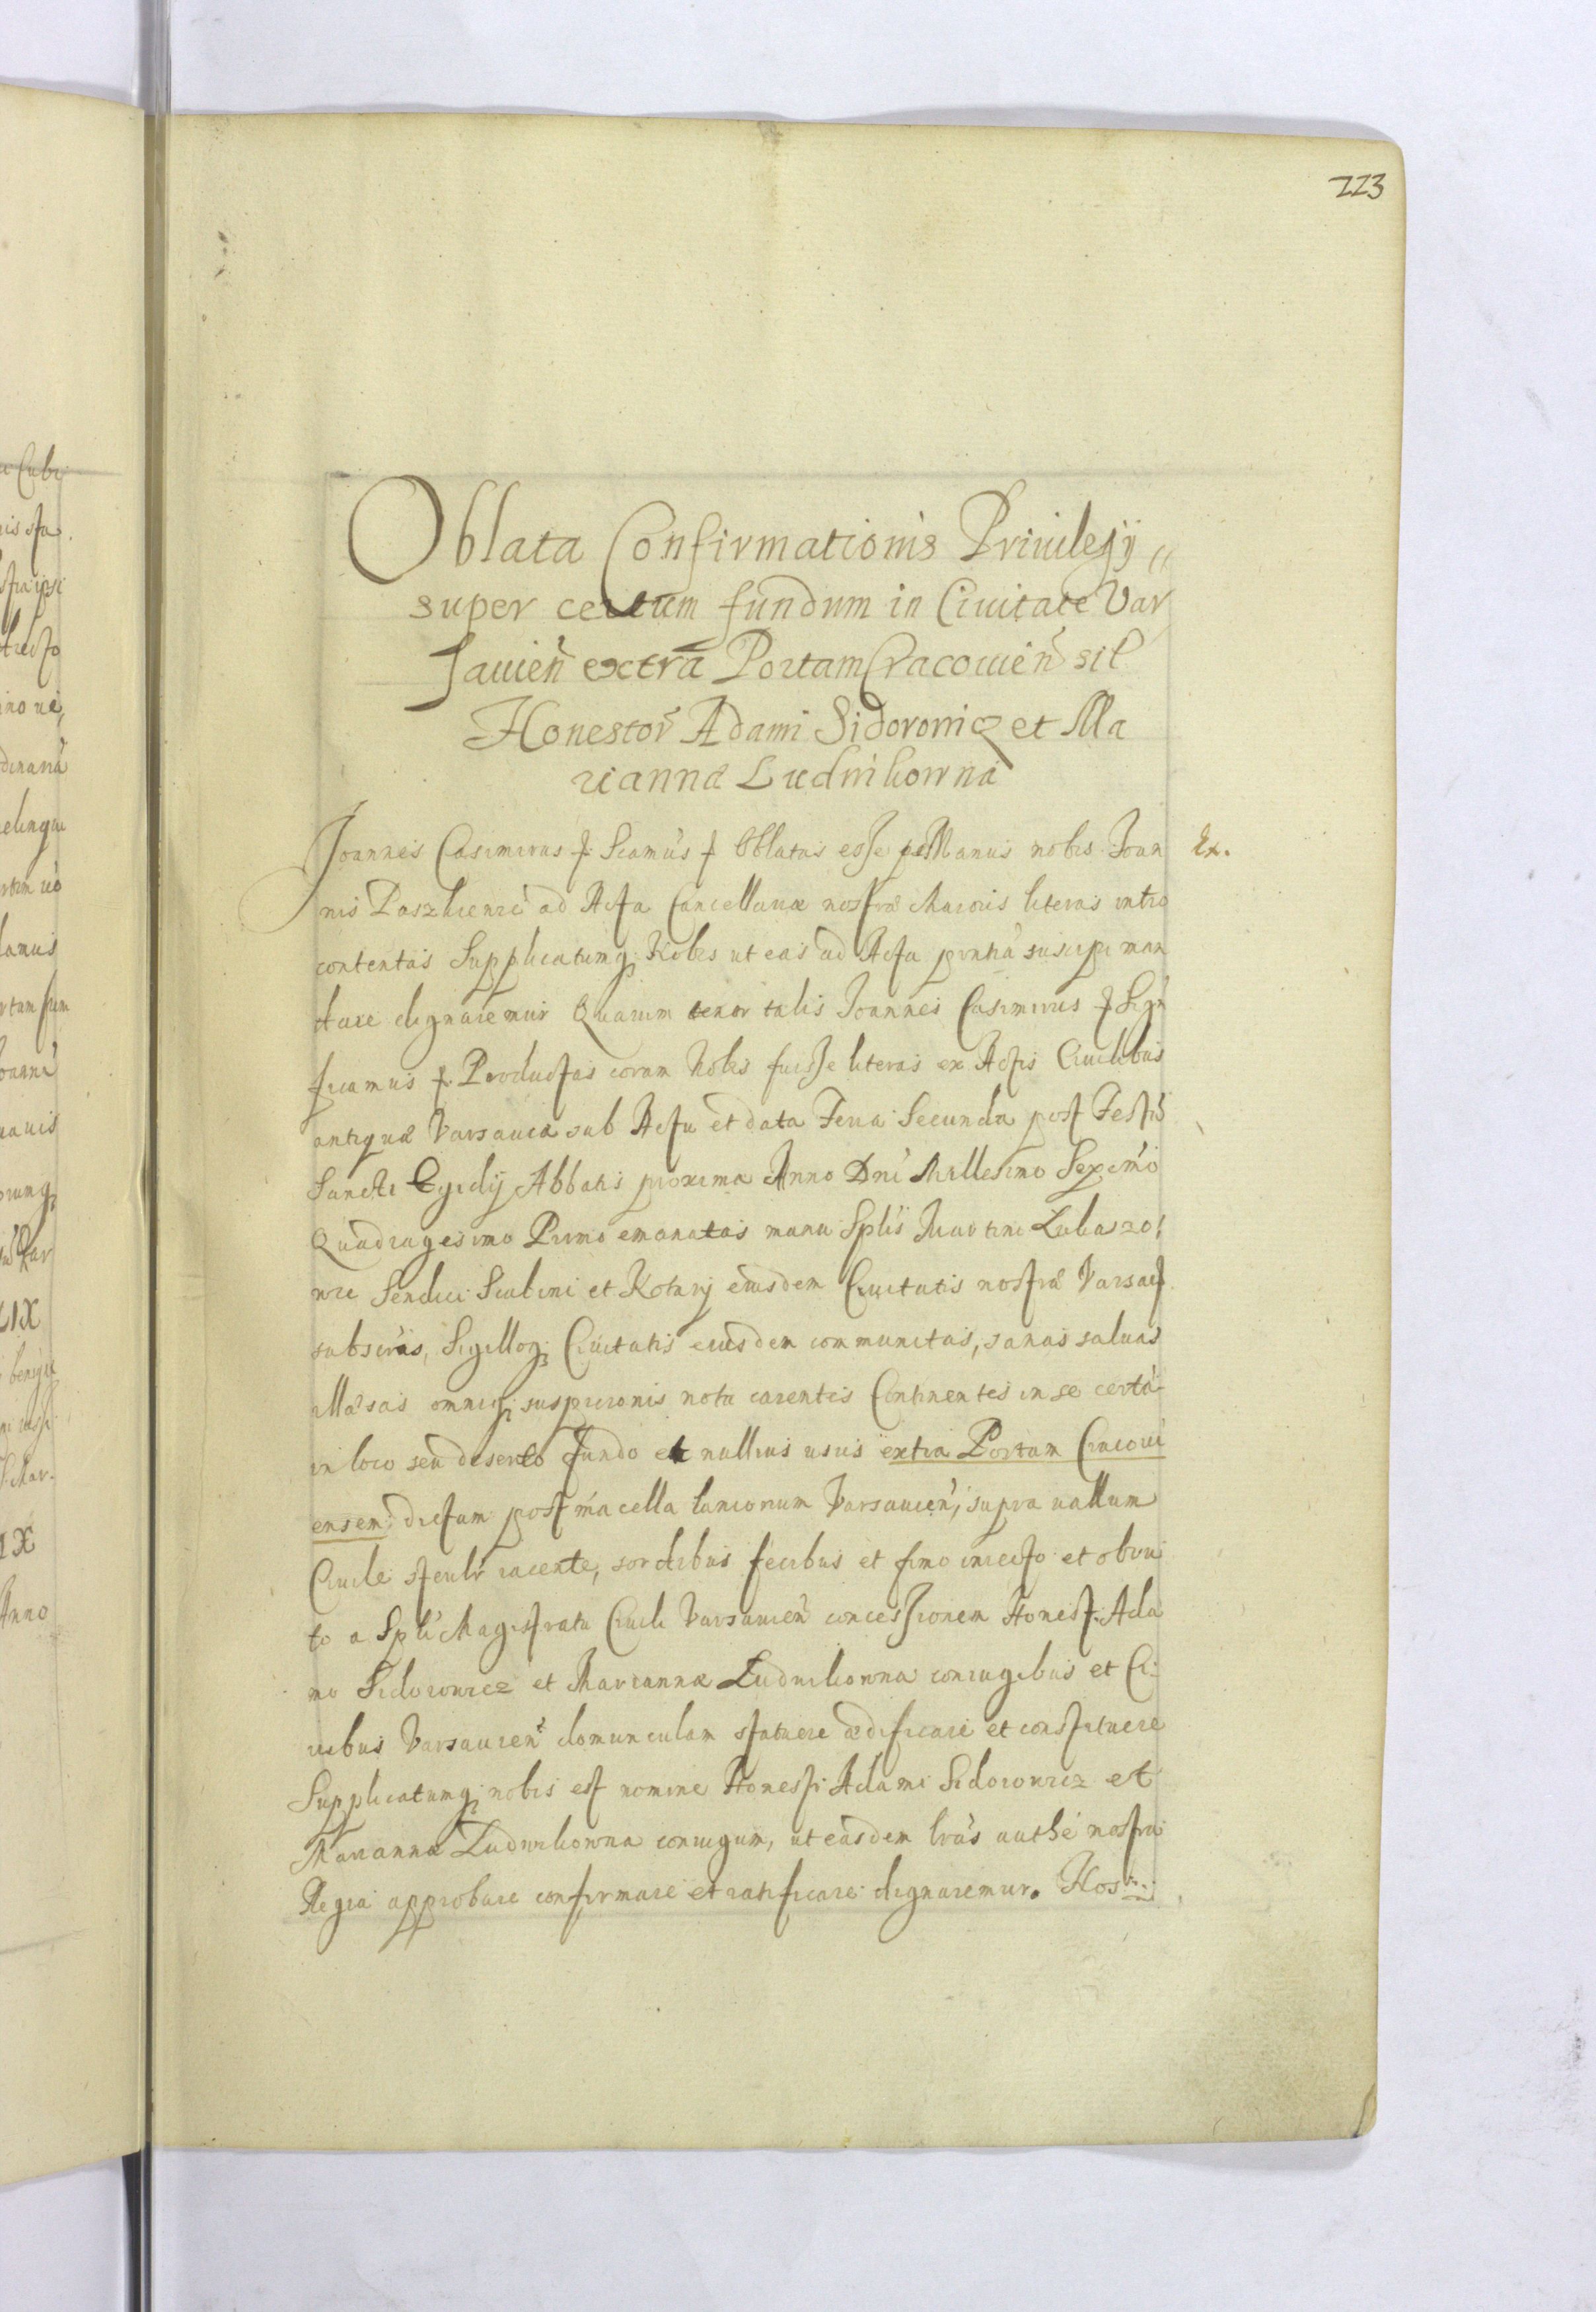 223
Oblata Confirmationis Priuilegÿ
super certum fundum in Ciuitate Var
sauień extra Portam Cracouień sil
Honestor̃ Adami Sidorowicz et Ma
riannæ Ludwikowna
Joannes Casimirus f. Sćamus f Oblatas esse per Manus nobis Joan
nis Paszkiewic ad Acta Cancellariæ nostræ Maioris literas intro
contentas Supplicatumq; Nobis ut eas ad Acta prñtia suscipi man
dare dignaremur Quarum tenor talis Joannes Casimirus f Sign
ficamus f. Productas coram Nobis fuisse literas ex Actis Ciuilibus
antiquæ Varsauiæ sub Actu et data Feria Secunda post Festũ
Sancti Egidÿ Abbatis proxima Anno Dnĩ Millesimo Sexcm̃o
Quadragesimo Primo emanatas manu Splis Martini
Sendici Scabini et Notarÿ eiusdem Ciuitatis nostræ Varsau
subscrãs, Sigilloq; Ciuitatis eiusdem communitas, sanas saluas
illæsas omniq; suspicionis nota carentes Continentes in se certã
in loco seu deserto Fundo et nullius usus extra Portam Cracoui
ensem dictam post macella lanionum Varsauień, supra uallum
Ciuile sterilr̃ iacente, sordibus fecibus et fimo iniecto et obru
to a Spli Magistratu Ciuili Varsauień concessionem Honest. Ada
mo Sidorowicz et Mariannæ Ludwikowna coniugibus et Ci
uibus Varsauień domunculam statuere ædificare et constituere
Supplicatumq; nobis est nomine Honesti Adami Sidorowicz et
Mariannæ Ludwikowna coniugum, ut easdem lrãs authẽ nostra
Regia approbare confirmare et ratificare dignaremur. Nos
Ex.